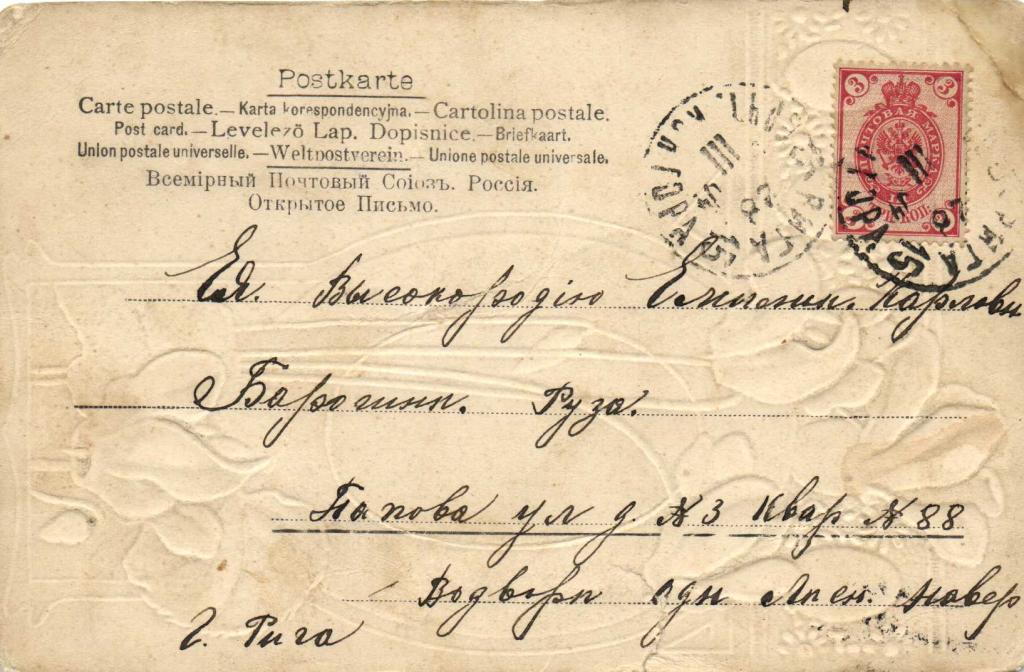 Postkarte
Carte postale. — Karta korespondencyjna. — Cartolina postale.
Post card. — Levelező Lap. Dopisnice. — Briefkaart.
Union postale universelle. — Weltpostverein. — Unione postale universale.
Всемірный Почтовый Союзъ. Россія.
Открытое Письмо.
3 3
ПОЧТОВАЯ МАРКА
РИГА
15
Ея. Высокородію Емилии. Карловн
Барогини. Руза.
Папова ул д. № 3 Квар № 88
Водворѣ одн
г. Рига